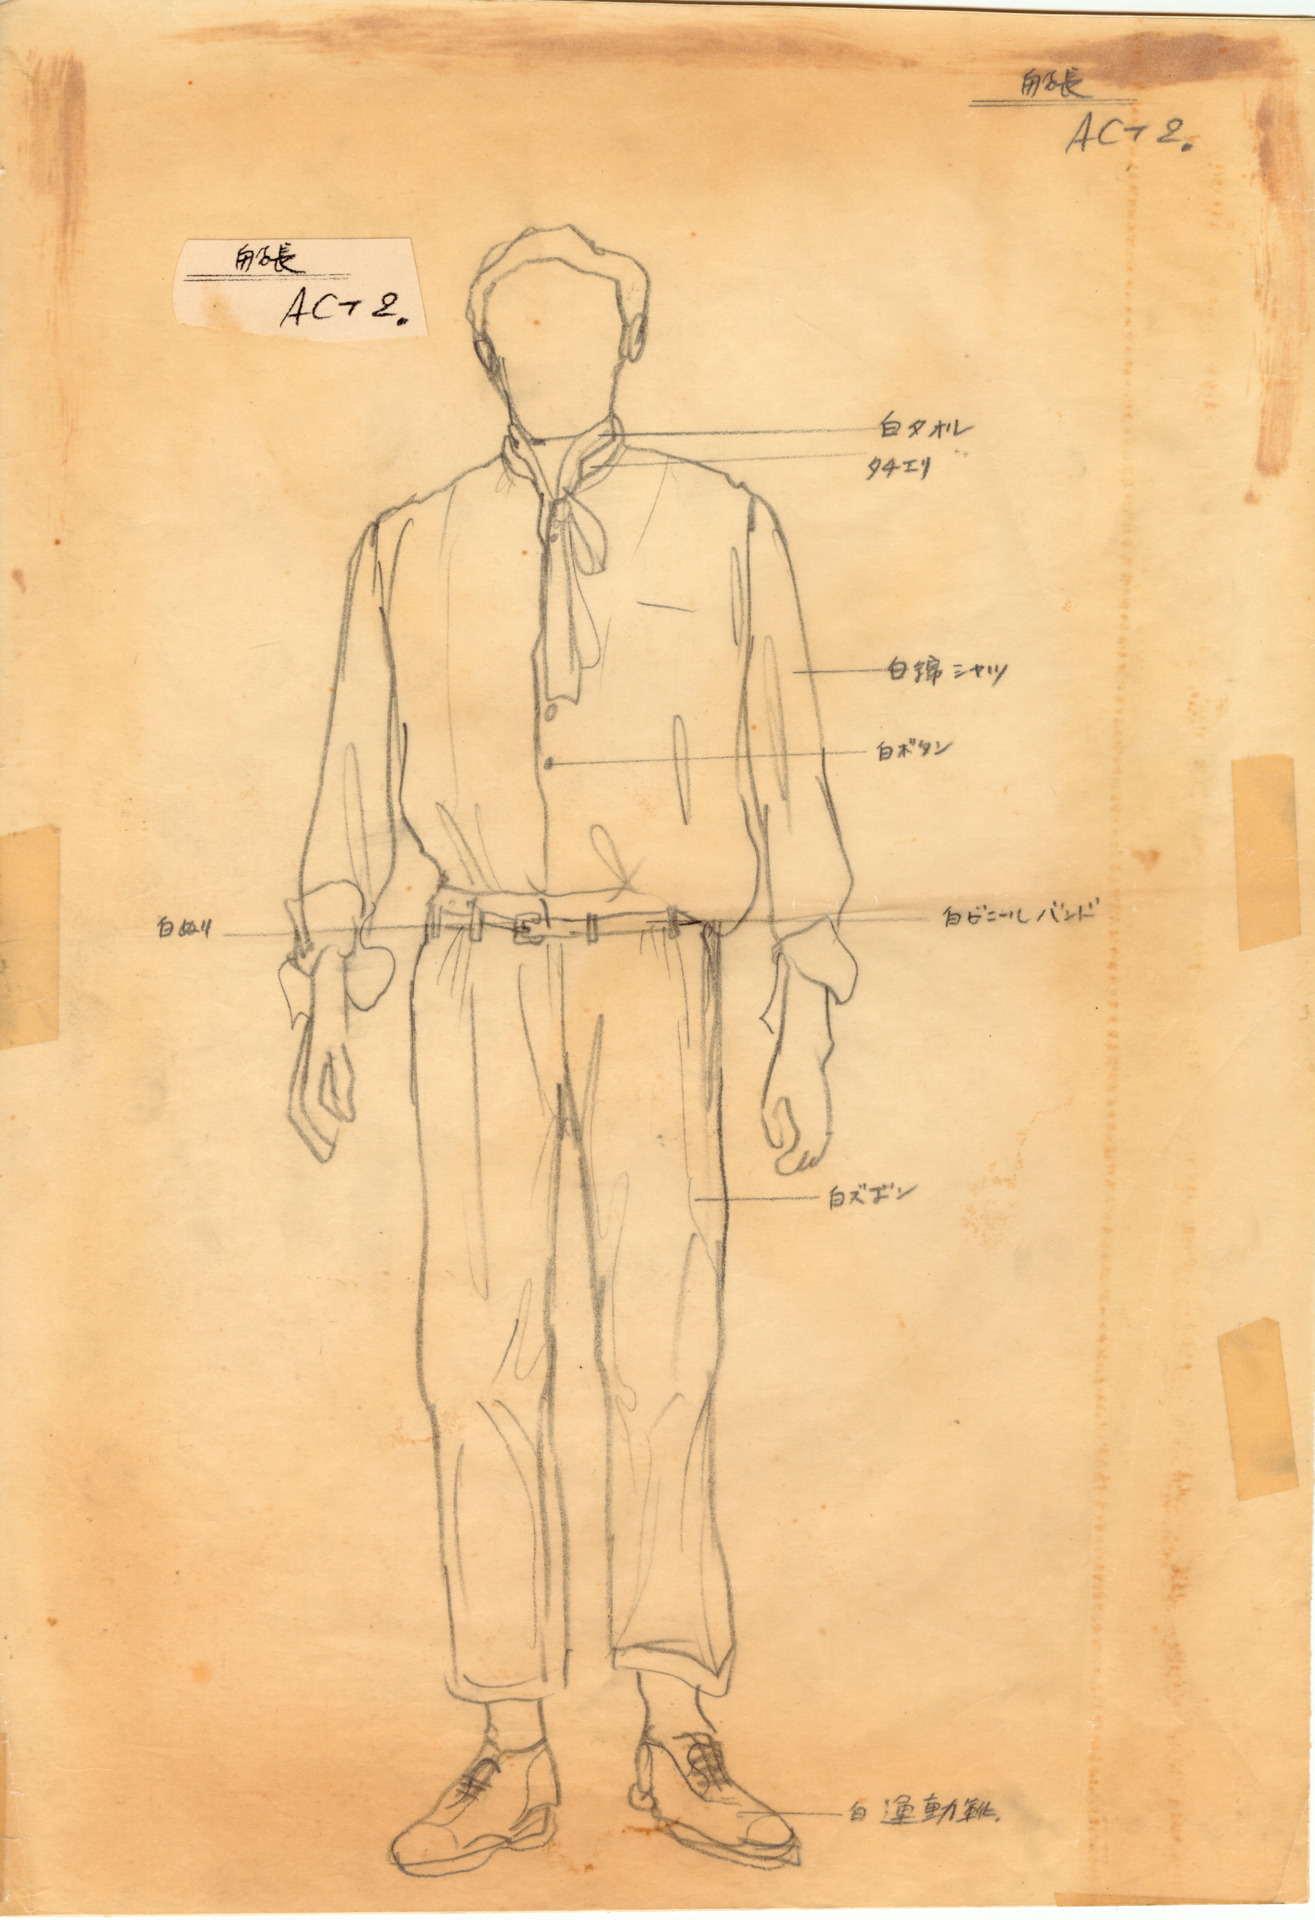 船長
ACT 2.
船長
ACT 2.
白タオル
タチエリ
白綿シャツ
白ボタン
白ぬり
白ビニールバンド
白ズボン
白運動靴.